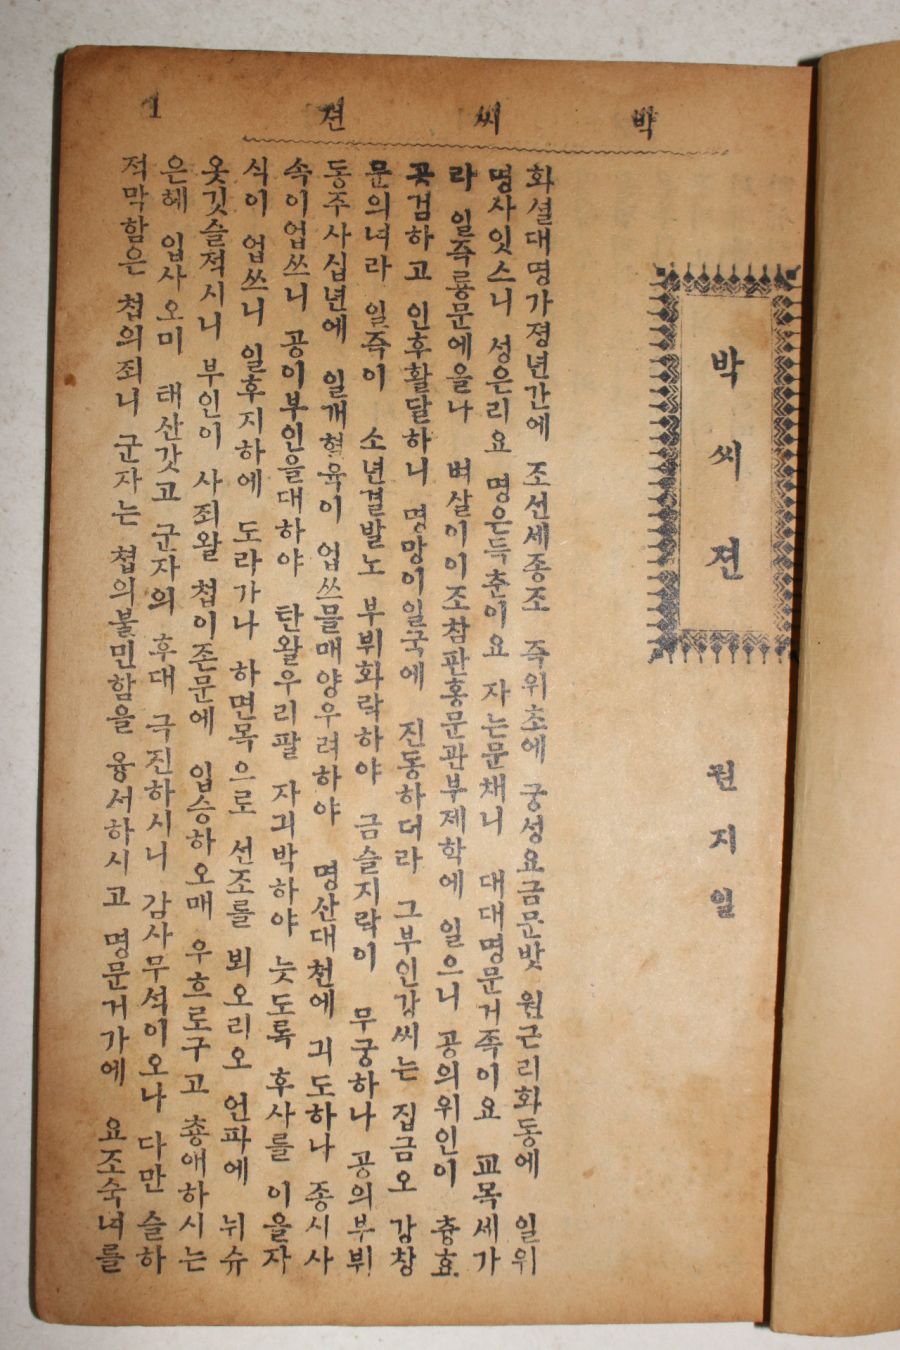 박씨젼 1
박씨젼
원지일
화셜대명가졍년간에 조선세종조 즉위초에 궁성요금문밧 원근리화동에 일위
명사잇스니 성은리요 명은득춘이요 자는문채니 대대명문거족이요 교목세가
라 일즉룡문에올나 벼살이이조참판홍문관부제학에 일으니 공의위인이 츙효
곳겸하고 인후활달하니 명망이일국에 진동하더라 그부인강씨는 집금오 강창
문의녀라 일즉이 소년결발노 부뷔화락하야 금슬지락이 무궁하나 공의부뷔
동주사십년에 일개혈육이 업쓰믈매양우려하야 명산대천에 긔도하나 종시사
속이업쓰니 공이부인을대하야 탄왈우리팔 자긔박하야 늣도록 후사를 이을자
식이 업쓰니 일후지하에 도라가나 하면목으로 선조를 뵈오리오 언파에 뉘슈
옷깃슬적시니 부인이 사죄왈 첩이존문에 입승하오매 우흐로구고 춍애하시는
은혜 입사오미 태산갓고 군자의 후대 극진하시니 감사무석이오나 다만 슬하
적막함은 첩의죄니 군자는 쳡의불민함을 용서하시고 명문거가에 요조숙녀를